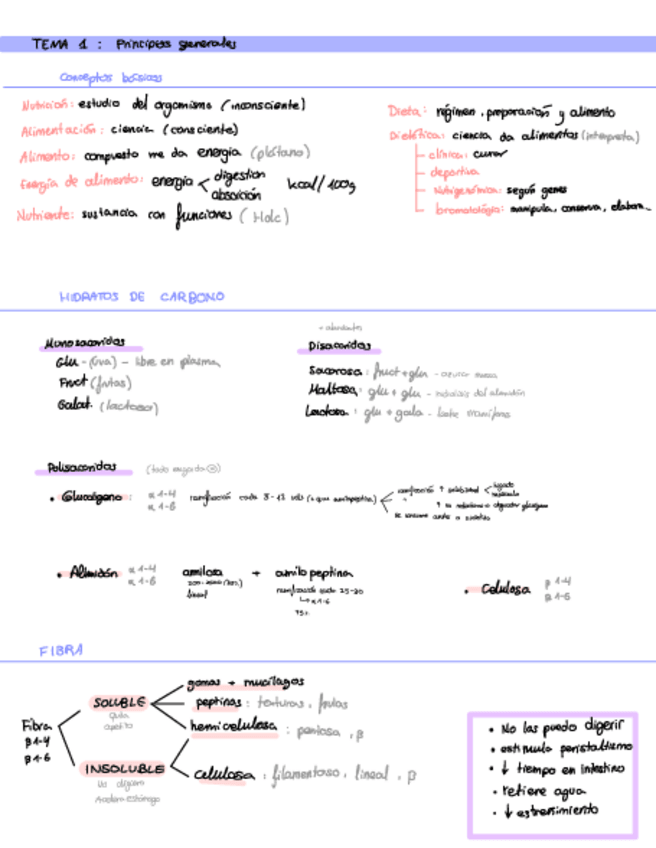 TEMA 1 : Principios generales
Conceptos básicos
Nutrición: estudio del organismo (inconsciente)
Alimentación: ciencia (consciente)
Alimento: compuesto me da energia (plátano)
Energía de alimento: energia < digestion
absorción
kcal/100g
Nutriente: sustancia con funciones (Holc)
Dieta: régimen, preparación y alimento
Dietética: ciencia da alimentos (interpreta)
clínica: curar
deportiva
Nutrigenómica: según genes
bromatología: manipula, conserva, elabora
HIDRATOS DE CARBONO
Monosacaridos
Glu - (uva) - libre en plasma
Fruct (frutas)
Galact. (lactosa)
+ abundantes
Disacaridos
Sacarosa: fruct + glu - azucar mesa
Maltosa: glu + glu - hidrolisis del almidón
Lactosa: glu + gala - leche mamíferos
Polisacaridos
• Glucógeno: α 1-4
α 1-6
ramificación cada 8-12 
ramificación ↑ solubilidad < higado
musculo
• Almidón α 1-4
α 1-6
amilosa + amilopeptina
lineal
ramificación cada 25-30
α 1-6
75%
• Celulosa β 1-4
β 1-6
FIBRA
Fibra
β 1-4
β 1-6
SOLUBLE
quita
apetito
gomas + mucílagos
peptinas: texturas, frutas
hemicelulosa: pentosa, β
INSOLUBLE
No digiere
celulosa: filamentoso, lineal, β
• No las puedo digerir
• estimula peristaltismo
• ↓ tiempo en intestino
• retiene agua
• ↓ estreñimiento